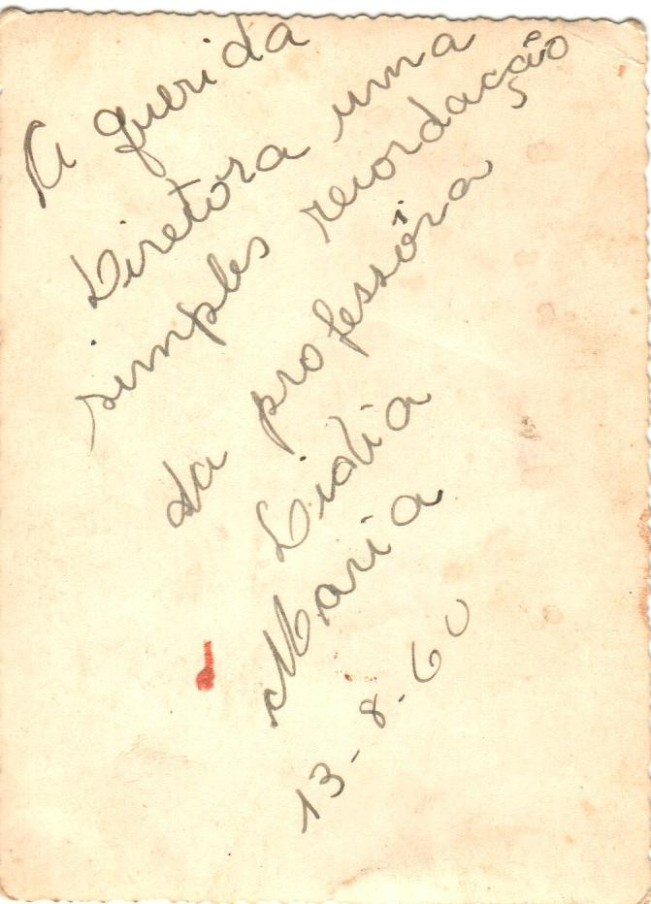 A querida
Diretora uma
simples recordação
da professôra
Lidia
Maria
13-8-60